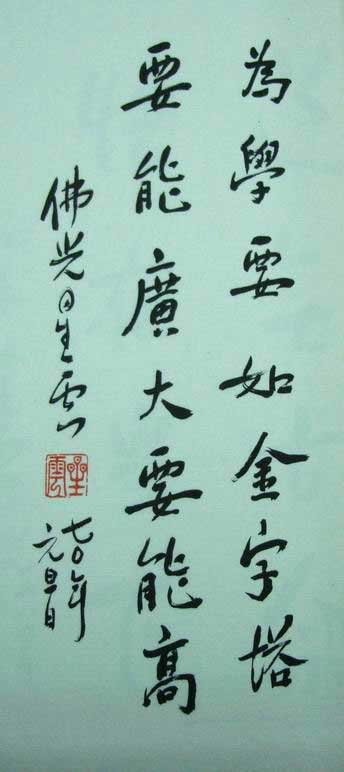 為學要如金字塔
要能廣大要能高
佛光星雲
星雲
七〇年
元旦